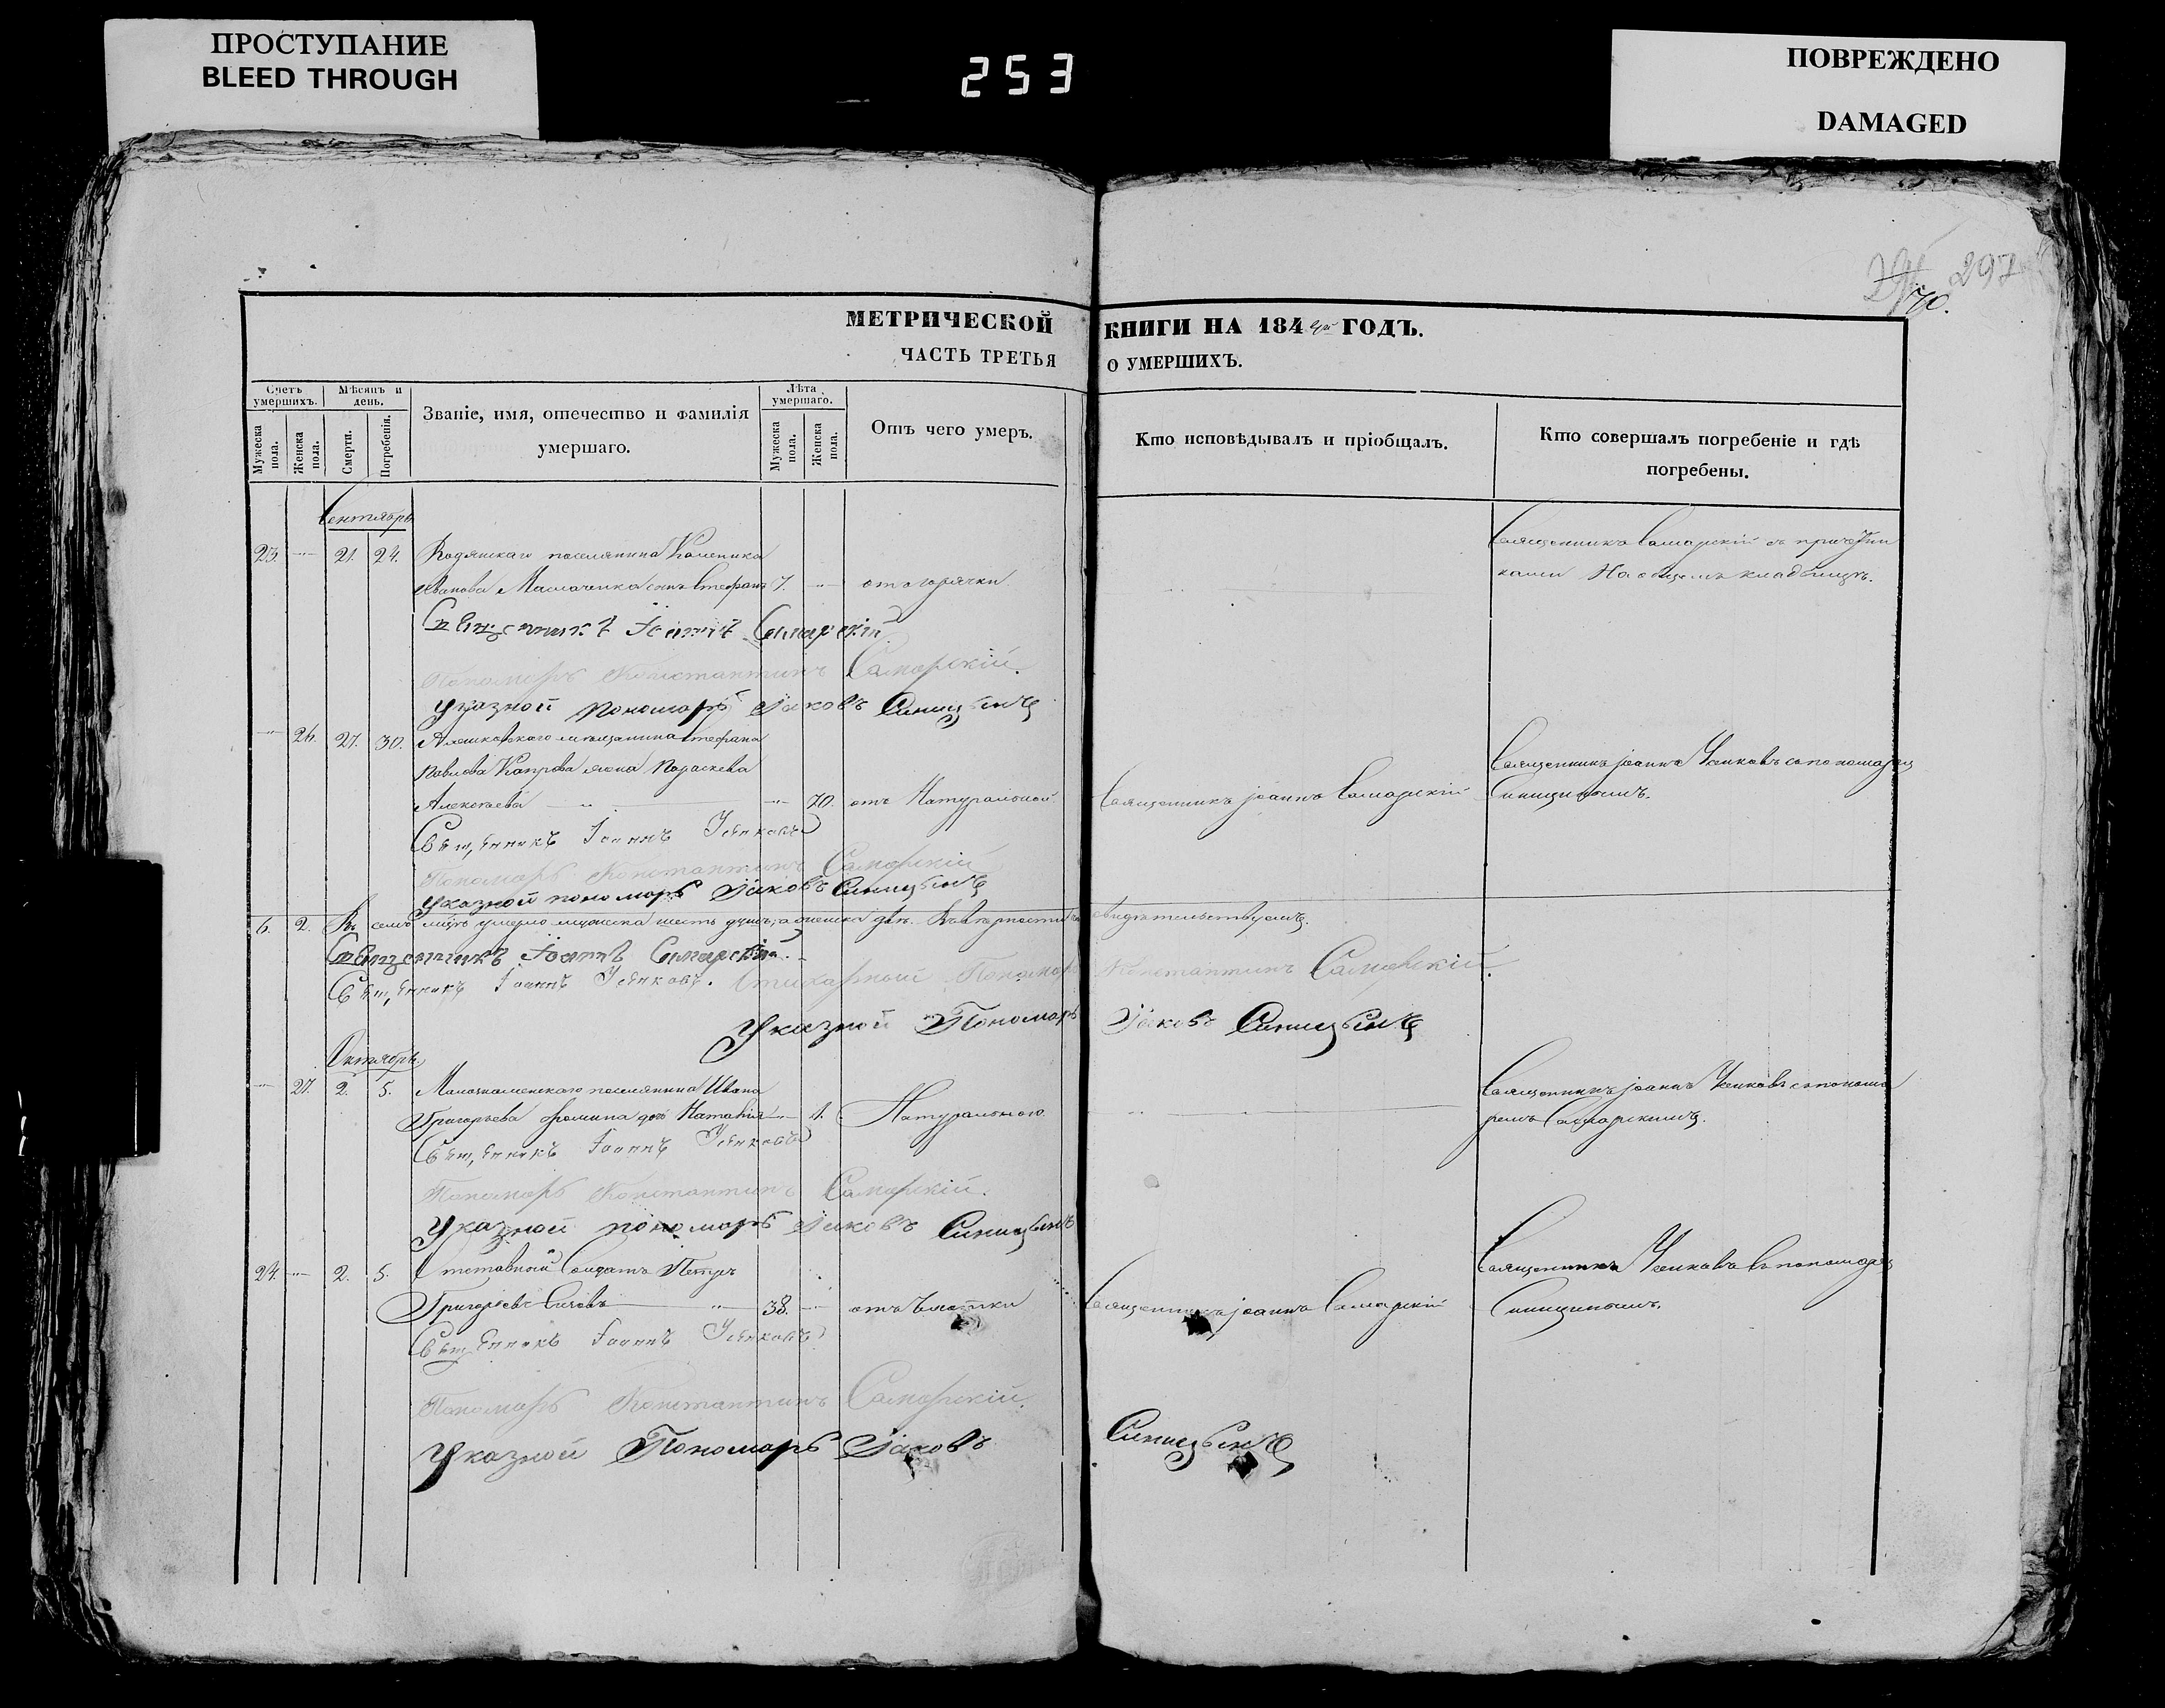 ПРОСТУПАНИЕ
BLEED THROUGH
253
ПОВРЕЖДЕНО
DAMAGED
297
70.
МЕТРИЧЕСКОЙ КНИГИ НА 184 ГОДЪ.
ЧАСТЬ ТРЕТЬЯ О УМЕРШИХЪ.
Счетъ умершихъ.
Мужеска пола.
Женска пола.
Мѣсяцъ и день.
Смерти.
Погребенія.
Званіе, имя, отечество и фамилія умершаго.
Лѣта умершаго.
Мужеска пола.
Женска пола.
Отъ чего умеръ.
Кто исповѣдывалъ и пріобщалъ.
Кто совершалъ погребеніе и гдѣ погребены.
Сентябрь
23. 21. 24. поселянина Священникъ Самарскій съ причетни
Иванова сынъ Стефанъ 7. отъ горячки ками На общемъ кладбищѣ.
Священникъ Іоаннъ Самарскій
Пономарь Константинъ Самарскій.
Указной пономарь Іаковъ Синицынъ
26. 27. 30. Алешковскаго мѣщанина Стефана Священникъ Іоаннъ съ пономаремъ
Павлова жена Параскева
Алексѣева 70. отъ Натуральной Священникъ Іоаннъ Самарскій Синицынымъ.
Священникъ Іоаннъ
Пономарь Константинъ Самарскій
Указной пономарь Іаковъ Синицынъ
6. 2. Въ семъ мцѣ умерло мужеска шесть душъ, а женска двѣ. Въ вѣрности свидѣтельствуемъ.
Священникъ Іоаннъ Самарскій.
Священникъ Іоаннъ Стихарный Пономарь Константинъ Самарскій.
Указной Пономарь Іаковъ Синицынъ
Октябрь.
27. 2. 5. поселянина Ивана Священникъ Іоаннъ съ понома
Григорьева Фомина дочь Наталія 1. Натуральною ремъ Самарскимъ.
Священникъ Іоаннъ
Пономарь Константинъ Самарскій.
Указной пономарь Іаковъ Синицынъ
24. 2. 5. Отставной Солдатъ Петръ Священникъ съ пономаремъ
Григорьевъ 38. отъ Священникъ Іоаннъ Самарскій Синицынымъ.
Священникъ Іоаннъ
Пономарь Константинъ Самарскій.
Указной Пономарь Іаковъ Синицынъ